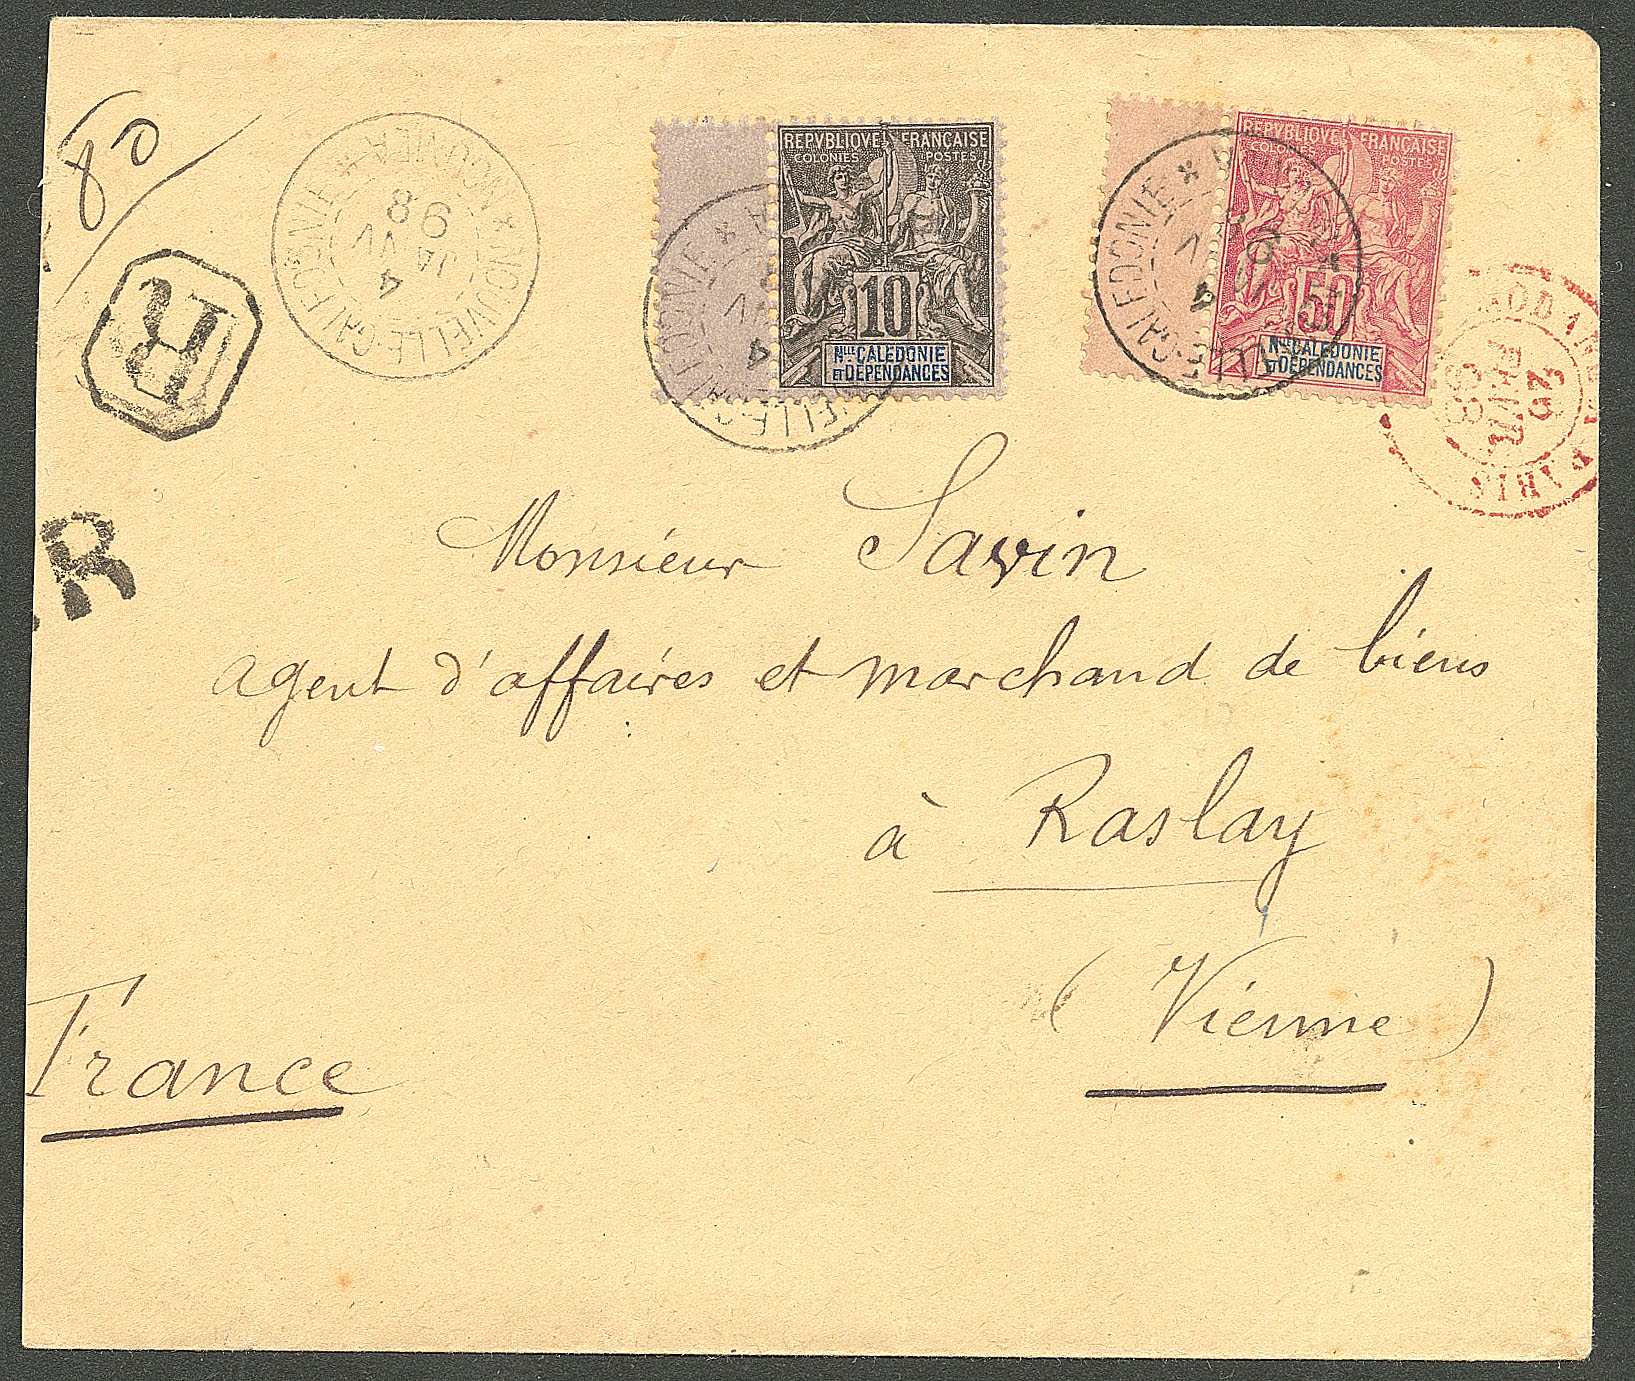 80
NOUVELLE-CALEDONIE
4
JANV
98
R
R
REPVBLIQVE FRANÇAISE
COLONIES POSTES
10
NLLE CALEDONIE
ET DÉPENDANCES
REPVBLIQVE FRANÇAISE
COLONIES POSTES
50
NLLE CALEDONIE
ET DÉPENDANCES
PARIS
FEVR
98
Monsieur Savin
agent d'affaires et marchand de biens
à Raslay
(Vienne)
France